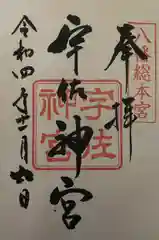 八幡総本宮
奉拝
宇佐神宮
宇佐
神宮
令和四年十一月廿日